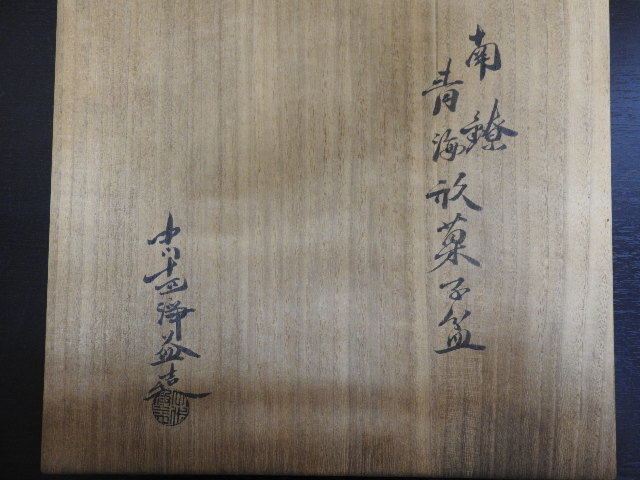 南鐐
青海形菓子盆
中川十四浄益造